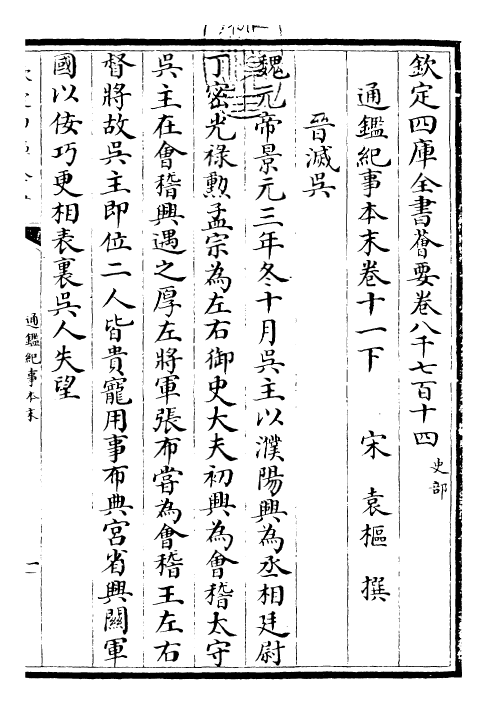 欽定四庫全書薈要卷八千七百十四 史部
通鑑紀事本末卷十一下 宋 袁樞 撰
晉滅吳
魏元帝景元三年冬十月吳主以濮陽興為丞相廷尉
丁密光祿勲孟宗為左右御史大夫初興為會稽太守
吳主在會稽興遇之厚左將軍張布嘗為會稽王左右
督將故吳主即位二人皆貴寵用事布典宮省興關軍
國以佞巧更相表裏吳人失望
通鑑紀事本末
一